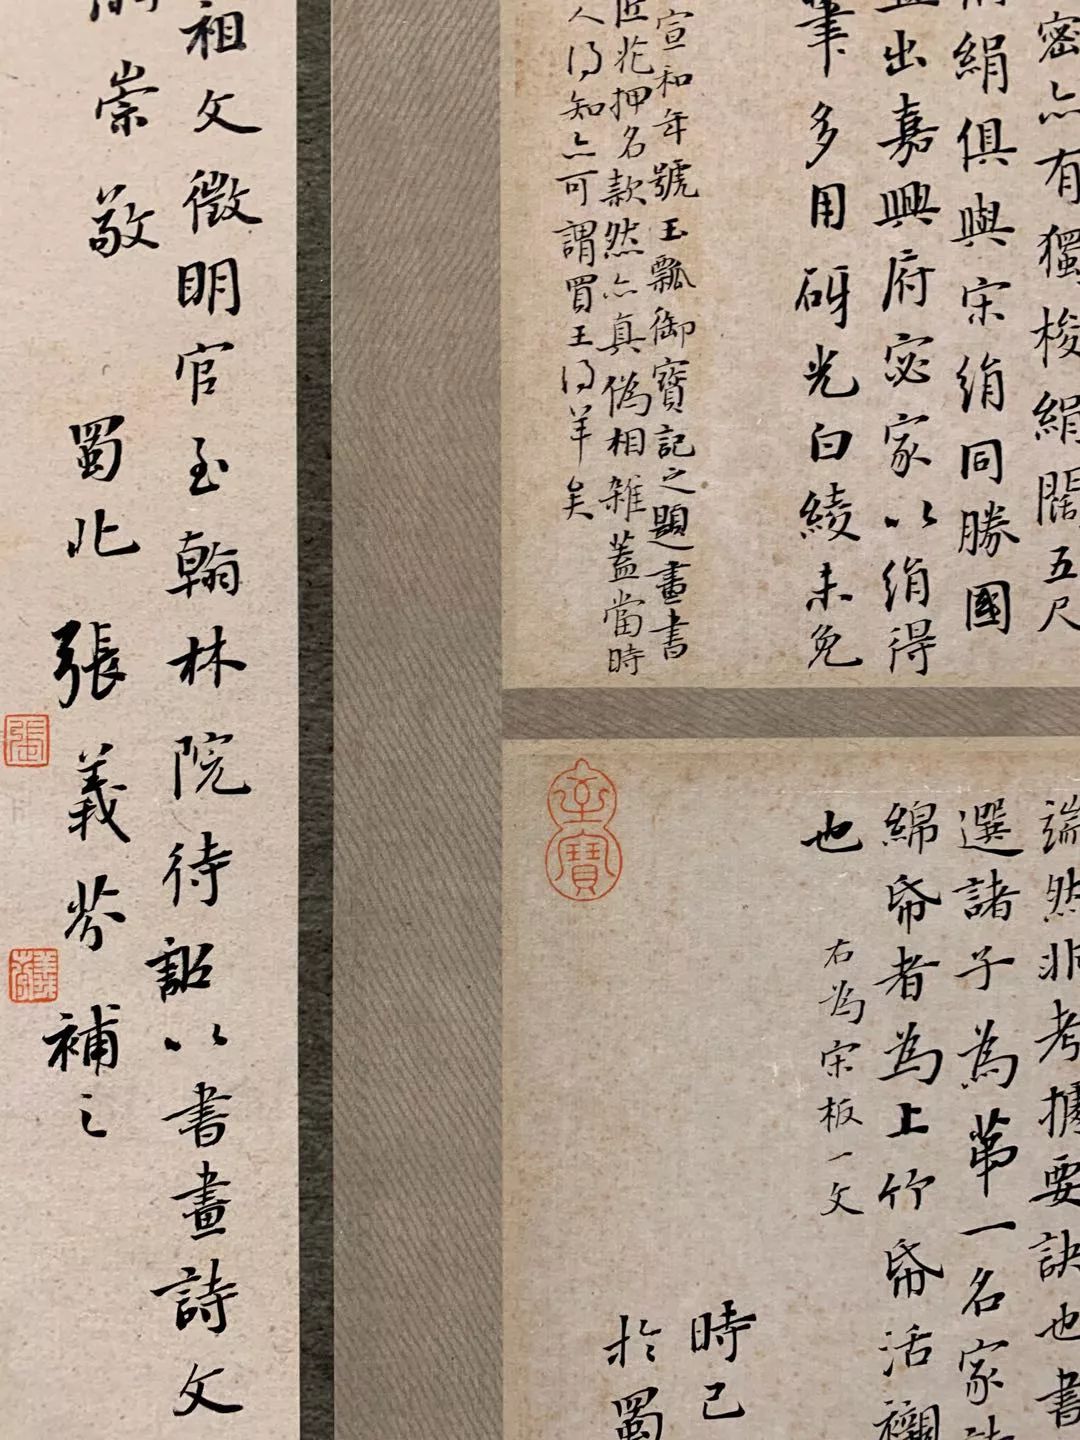 密亦有獨梭絹闊五尺
絹俱與宋絹同勝國
出嘉興府宓家以絹得
筆多用砑光白綾未免
宣和年號玉瓢御寶記之題畫書
匠花押名款然亦真偽相雜蓋當時
人得知亦可謂買王得羊矣
端然非考據要訣也書
選諸子為第一名家
綿帋者為上竹帋活襯
也
右為宋板一文
時己
於蜀
玄寶
祖文徵明官至翰林院待詔以書畫詩文
崇敬
蜀北張義芬補之
張
義芬